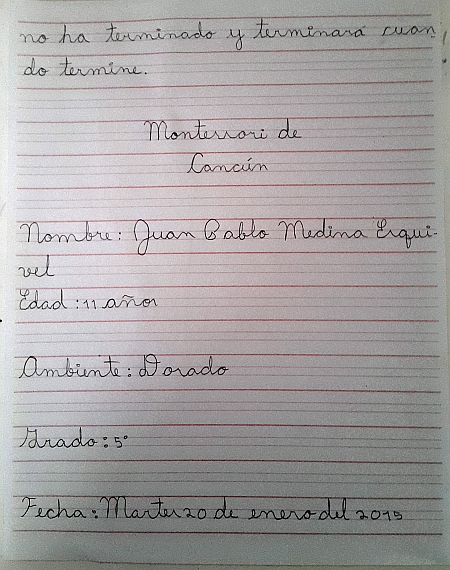 no ha terminado y terminará cuan
do termine.
Montessori de
Cancún
Nombre: Juan Pablo Medina Esqui-
vel
Edad: 11 años
Ambiente: Dorado
Grado: 5°
Fecha: Martes 20 de enero del 2015